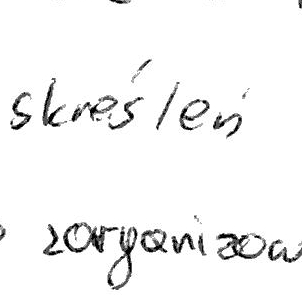 skreśleń
zorganizow